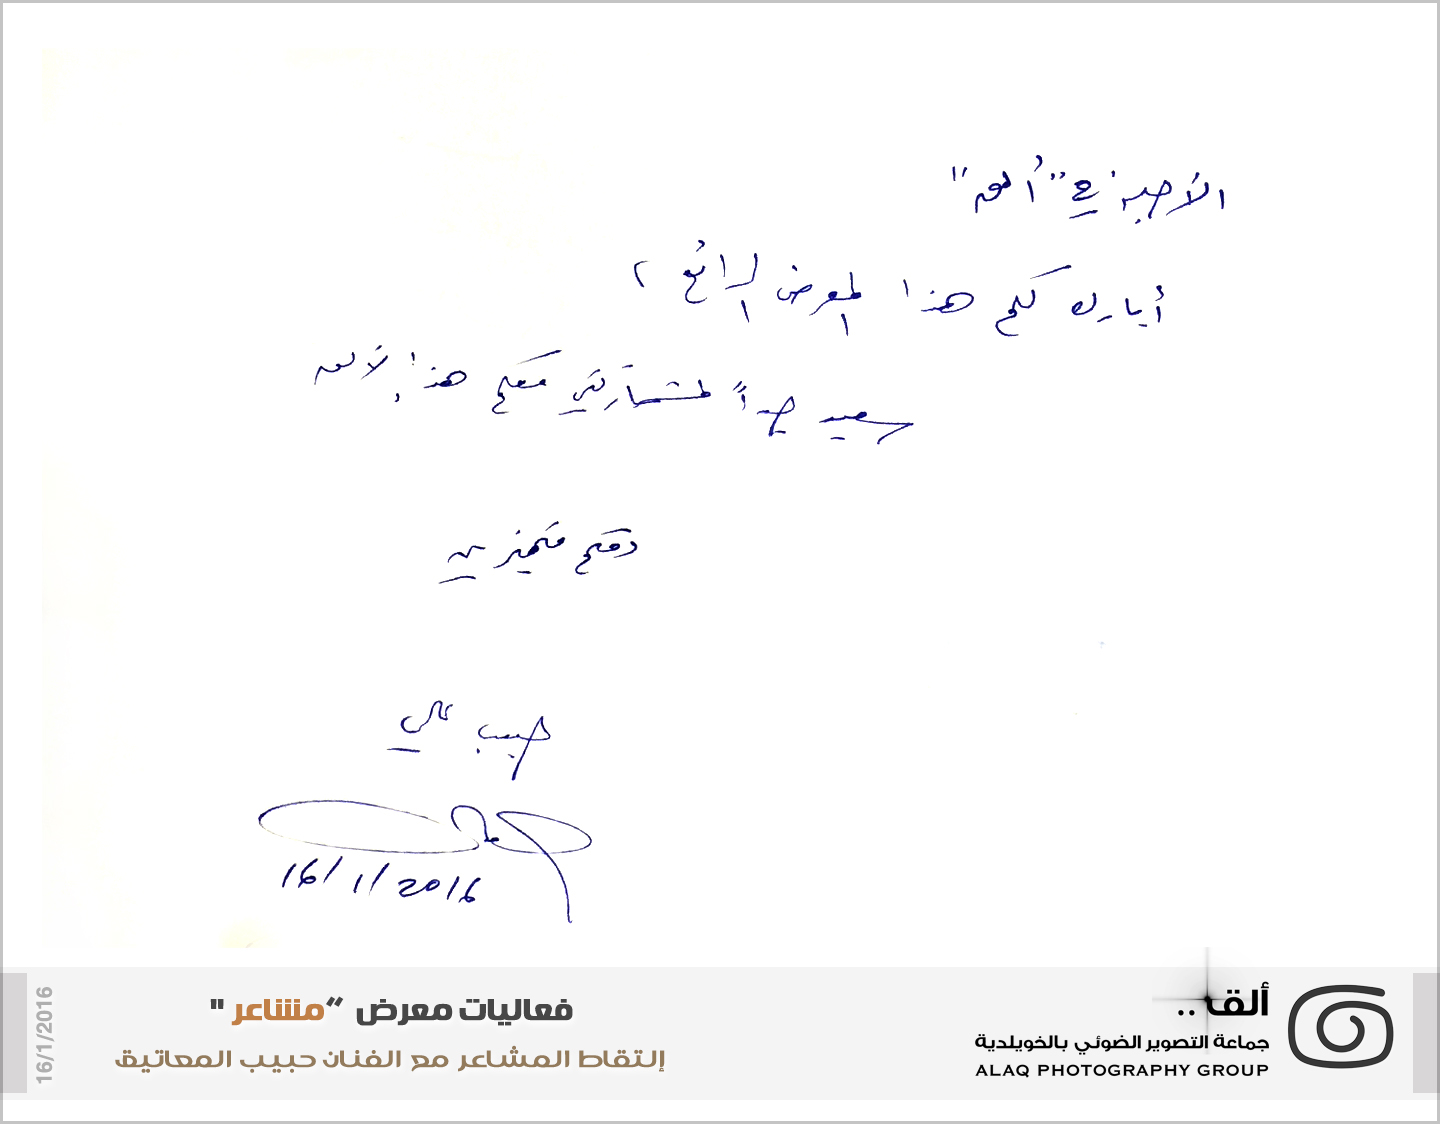 الأحبة في "ألق"
أبارك لكم هذا المعرض الرائع ،
سعيد جداً لمشاركتي معكم هذا الألق
دمتم متميزين
حبيب علي
16/1/2016
فعاليات معرض "مشاعر"
إلتقاط المشاعر مع الفنان حبيب المعاتيق
16/1/2016
ألق ..
جماعة التصوير الضوئي بالخويلدية
ALAQ PHOTOGRAPHY GROUP